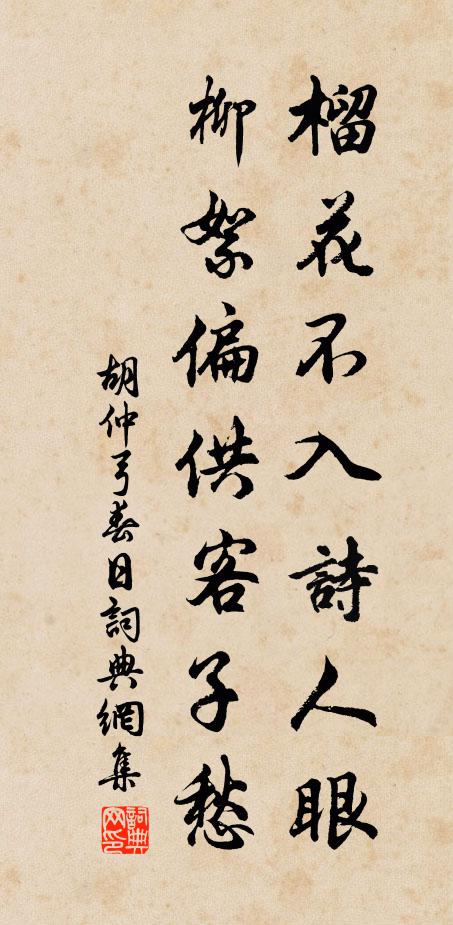 榴花不入詩人眼
柳絮偏供客子愁
胡仲弓春日詞典網集
詞典網印